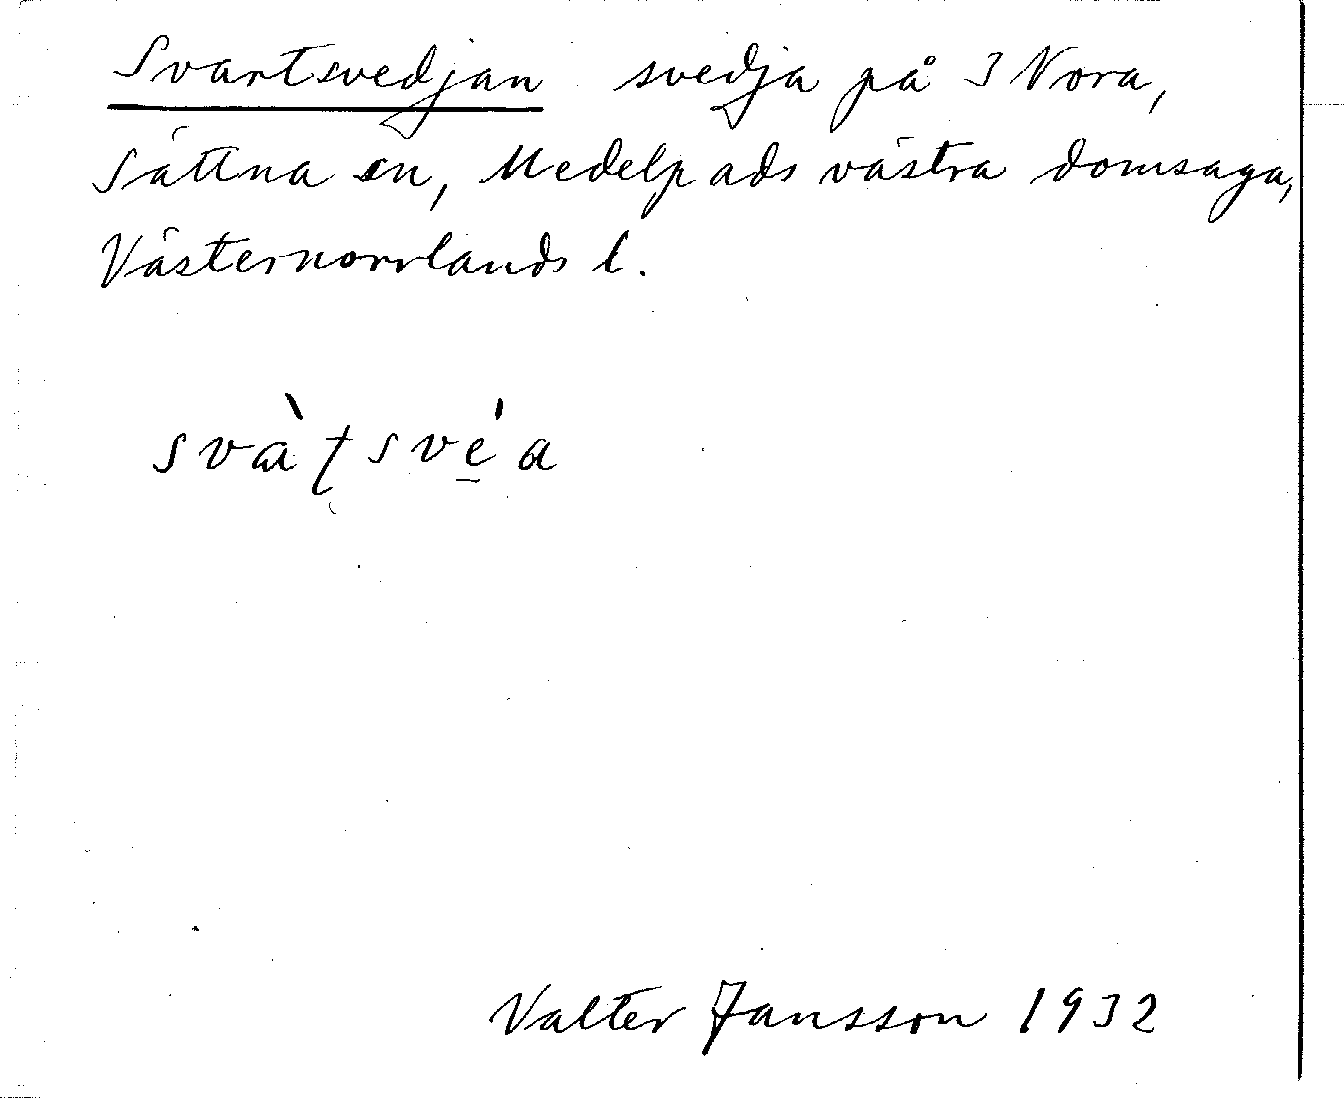 Svartsvedjan svedja på 3 Nora,
Sättna sn, Medelpads västra domsaga,
Västernorrlands l.
svàʈsvé̱a
Valter Jansson 1932